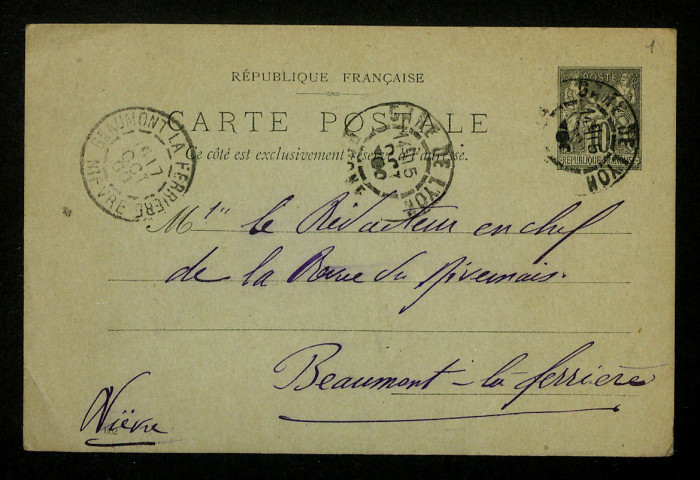 RÉPUBLIQUE FRANÇAISE
CARTE POSTALE
Ce côté est exclusivement réservé à l'adresse.
POSTE
10
REPUBLIQUE FRANÇAISE
BEAUMONT LA FERRIERE
NIEVRE
GARE DE LYON
GARE DE LYON
le Rédacteur en chef
de la Revue du Nivernais
Beaumont-la-ferrière
Nièvre